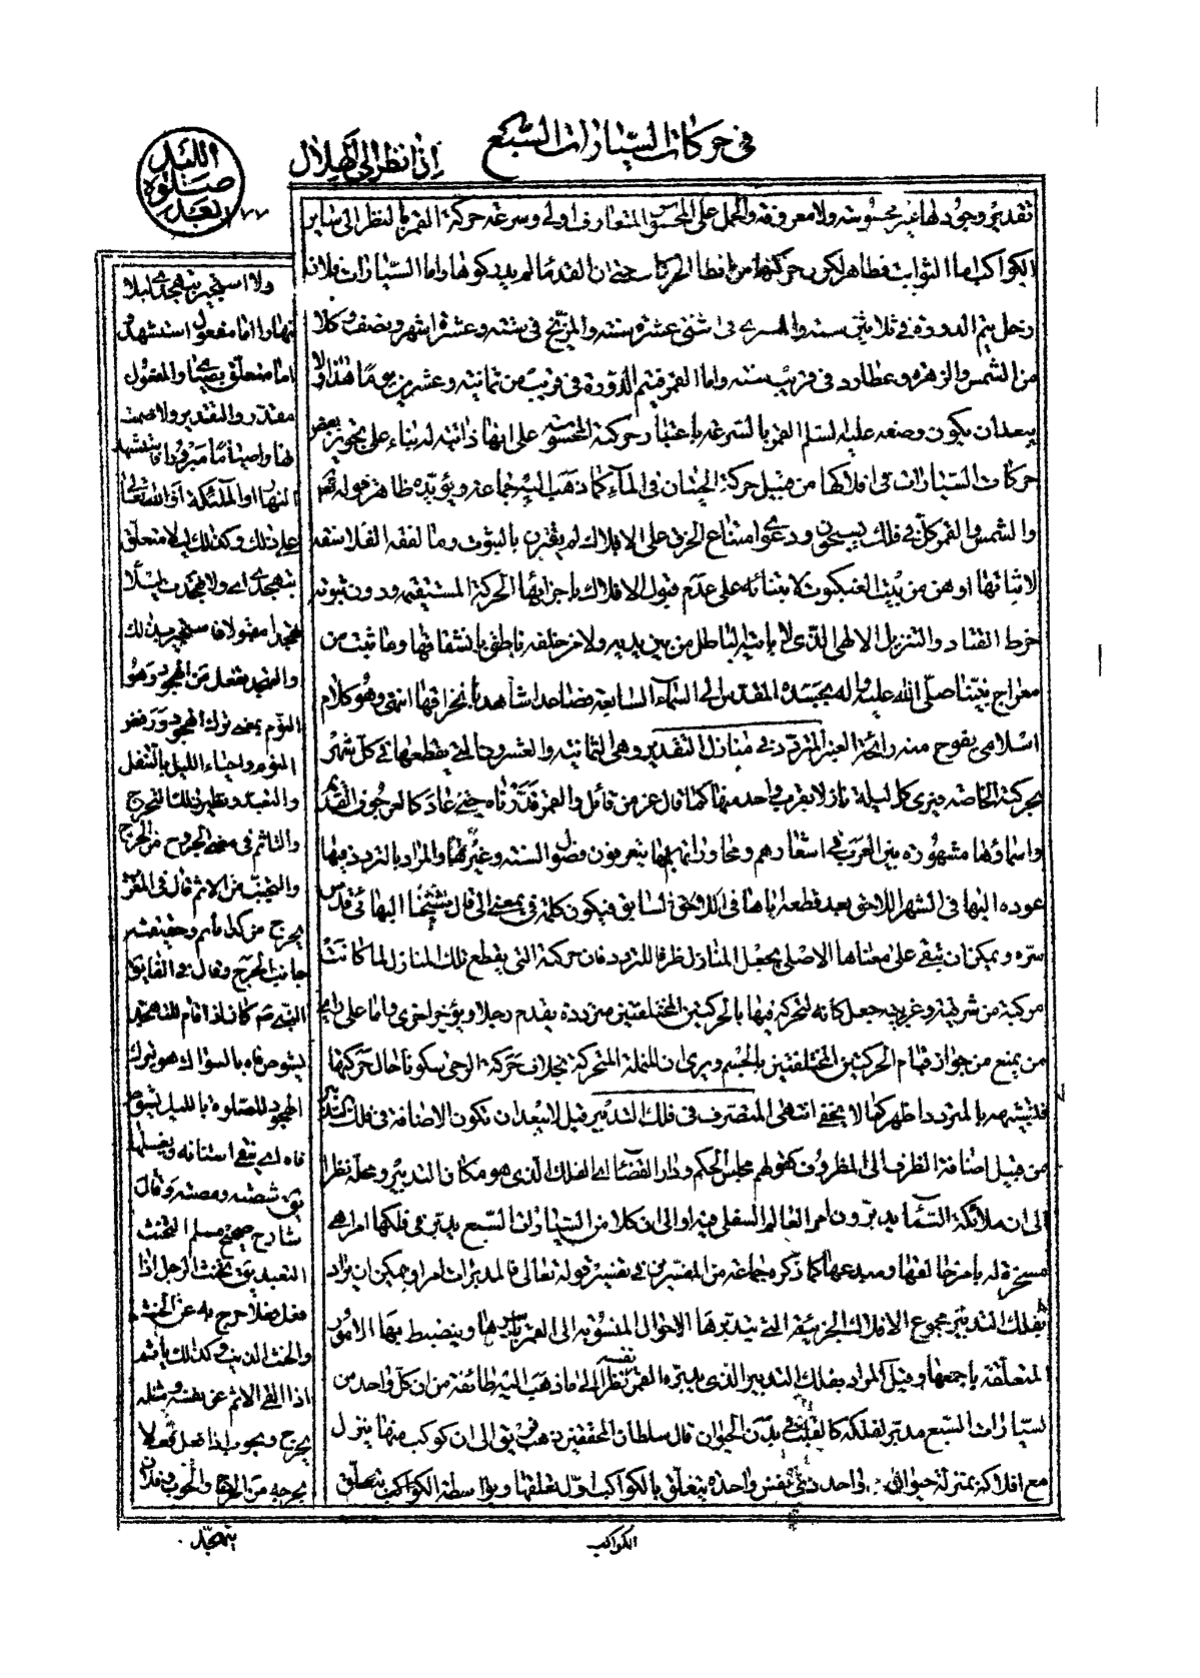 في حركات السيارات السبع
إذا نظر إلى الهلال
الليل
صلوة
بعد
٧٧
تقدير وجودها غير محسوسة ولا معروفة والحمل على المحسوس المتعارف اولى وسرعة حركة القمر بالنظر الى سائر
الكواكب اما الثوابت فظاهر لكون حركتها من ابطأ الحركات حتى ان القدماء لم يدركوها واما السيارات فلان
زحل يتم الدورة في ثلاثين سنة والمشتري في اثنتي عشرة سنة والمريخ في سنة وعشرة اشهر ونصف وكلا
من الشمس والزهرة وعطارد في قريب سنة واما القمر فيتم الدورة في قريب من ثمانية وعشرين يوما هذا ولا
يبعد ان يكون وصفه عليه السلم القمر بالسرعة باعتبار حركته المحسوسة على انها ذاتية له بناء على تجويز بعض
حركات السيارات في افلاكها من قبيل حركة الحيتان في الماء كما ذهب اليه جماعة ويؤيده ظاهر قوله تعالى
والشمس والقمر كل في فلك يسبحون ودعوى امتناع الخرق على الافلاك لم يقترن بالثبوت وما لفقه الفلاسفة
لاثباتها اوهن من بيت العنكبوت لابتنائه على عدم قبول الافلاك باجزائها الحركة المستقيمة ودون ثبوته
خرط القتاد والتنزيل الالهي الذي لا يأتيه الباطل من بين يديه ولا من خلفه ناطق بانشقاقها وما ثبت من
معراج نبينا صلى الله عليه واله بجسده المقدس الى السماء السابعة فصاعدا شاهد بانخراقها انتهى وهو كلام
اسلامي يفوح منه رائحة العبير المتردد في منازل التقدير وهي الثمانية والعشرون التي يقطعها في كل شهر
بحركته الخاصة فيرى كل ليلة نازلا بقرب واحد منها كما قال عز من قائل والقمر قدرناه حتى عاد كالعرجون القديم
واسماؤها مشهورة بين العرب في اسفارهم ومحاوراتهم بها يتعرفون فصول السنة وغيرها والمراد بالتردد فيها
عوده اليها في الشهر اللاحق بعد قطعه اياها في السابق فيكون كلمة في بمعنى الى قال شيخنا البهائي قدس
سره ويمكن ان تبقى على معناها الاصلي بجعل المنازل ظرفا للتردد فان حركته التي يقطع تلك المنازل لما كانت
مركبة من شرقية وغربية جعل كانه لتحركه فيها بالحركتين المختلفتين متردد يقدم رجلا ويؤخر اخرى واما على راي
من يمنع من جواز قيام الحركتين المختلفتين بالجسم ويرى ان للنملة المتحركة بخلاف حركة الرحى سكونا حال حركتها
فتشبيهه بالمتردد اظهر كما لا يخفى انتهى المتصرف في فلك التدبير قيل لا يبعد ان تكون الاضافة في فلك التدبير
من قبيل اضافة الظرف الى المظروف كقولهم مجلس الحكم ودار القضاء اي الفلك الذي هو مكان التدبير ومحله نظرا
الى ان ملائكة السماء يدبرون امر العالم السفلي فيه او الى ان كلا من السيارات السبع يدبر في فلكها امرا هي
مسخرة له بامر خالقها ومبدعها كما ذكره جماعة من المفسرين في تفسير قوله تعالى فالمدبرات امرا ويمكن ان يراد
بفلك التدبير مجموع الافلاك الجزئية التي تتدبر بها الاحوال المنسوبة الى القمر باسرها وينضبط بها الامور
المتعلقة باجمعها وقيل المراد بفلك التدبير الذي يدبره القمر نفسه نظرا الى ما ذهب اليه طائفة من ان كل واحد من
لسيارات السبع مدبر لفلكه كالقلب في بدن الحيوان قال سلطان المحققين ذهب فريق الى ان كوكب منها ينزل
مع افلاكه بمنزلة حيوان واحد ذي نفس واحدة يتعلق بالكواكب اول تعلقها وبواسطة الكواكب تتعلق
الكواكب
نهارا اما مفعول استشهد
اما متعلق والمفعول
مقدر والتقدير ولا صمت
على ذلك وكذلك ليلا متعلق
والتهجد تفعل من الهجود وهو
النوم بمعنى ترك الهجود ورفض
النوم واحياء الليل بالتنفل
والتعبد ونظير ذلك التحرج
والتأثم في معنى الخروج من الحرج
والتجنب من الاثم قال في
جانب الحرج وقال في الفايق
النبي ص كان اذا قام للتهجد
يشوص فاه بالسواك هو ترك
الهجود للصلوة بالليل يشوص
فاه اي ينقي اسنانه ويغسلها
وقال
شارح صحيح مسلم التحنث
التعبد يق تحنث الرجل اذا
فعل فعلا خرج به عن الحنث
والحنث الذنب وكذلك تأثم
اذا القى الاثم عن نفسه ومثله
تحرج وتحوب اذا فعل فعلا
يخرجه من الحرج والحوب وفلان
يتهجد